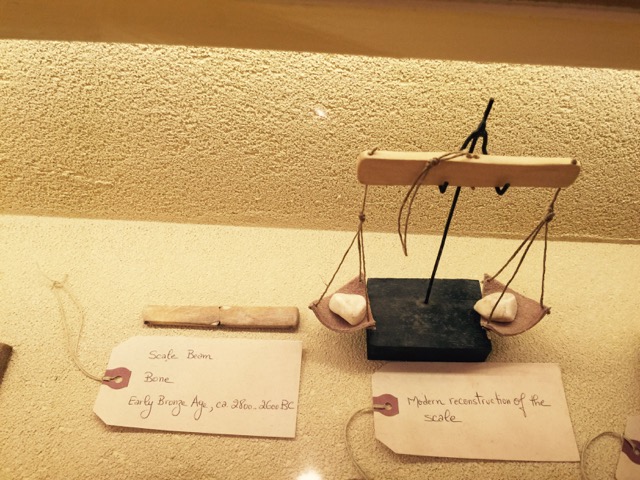 Scale Beam
Bone
Early Bronze Age, ca 2800-2600 BC
Modern reconstruction of the
scale